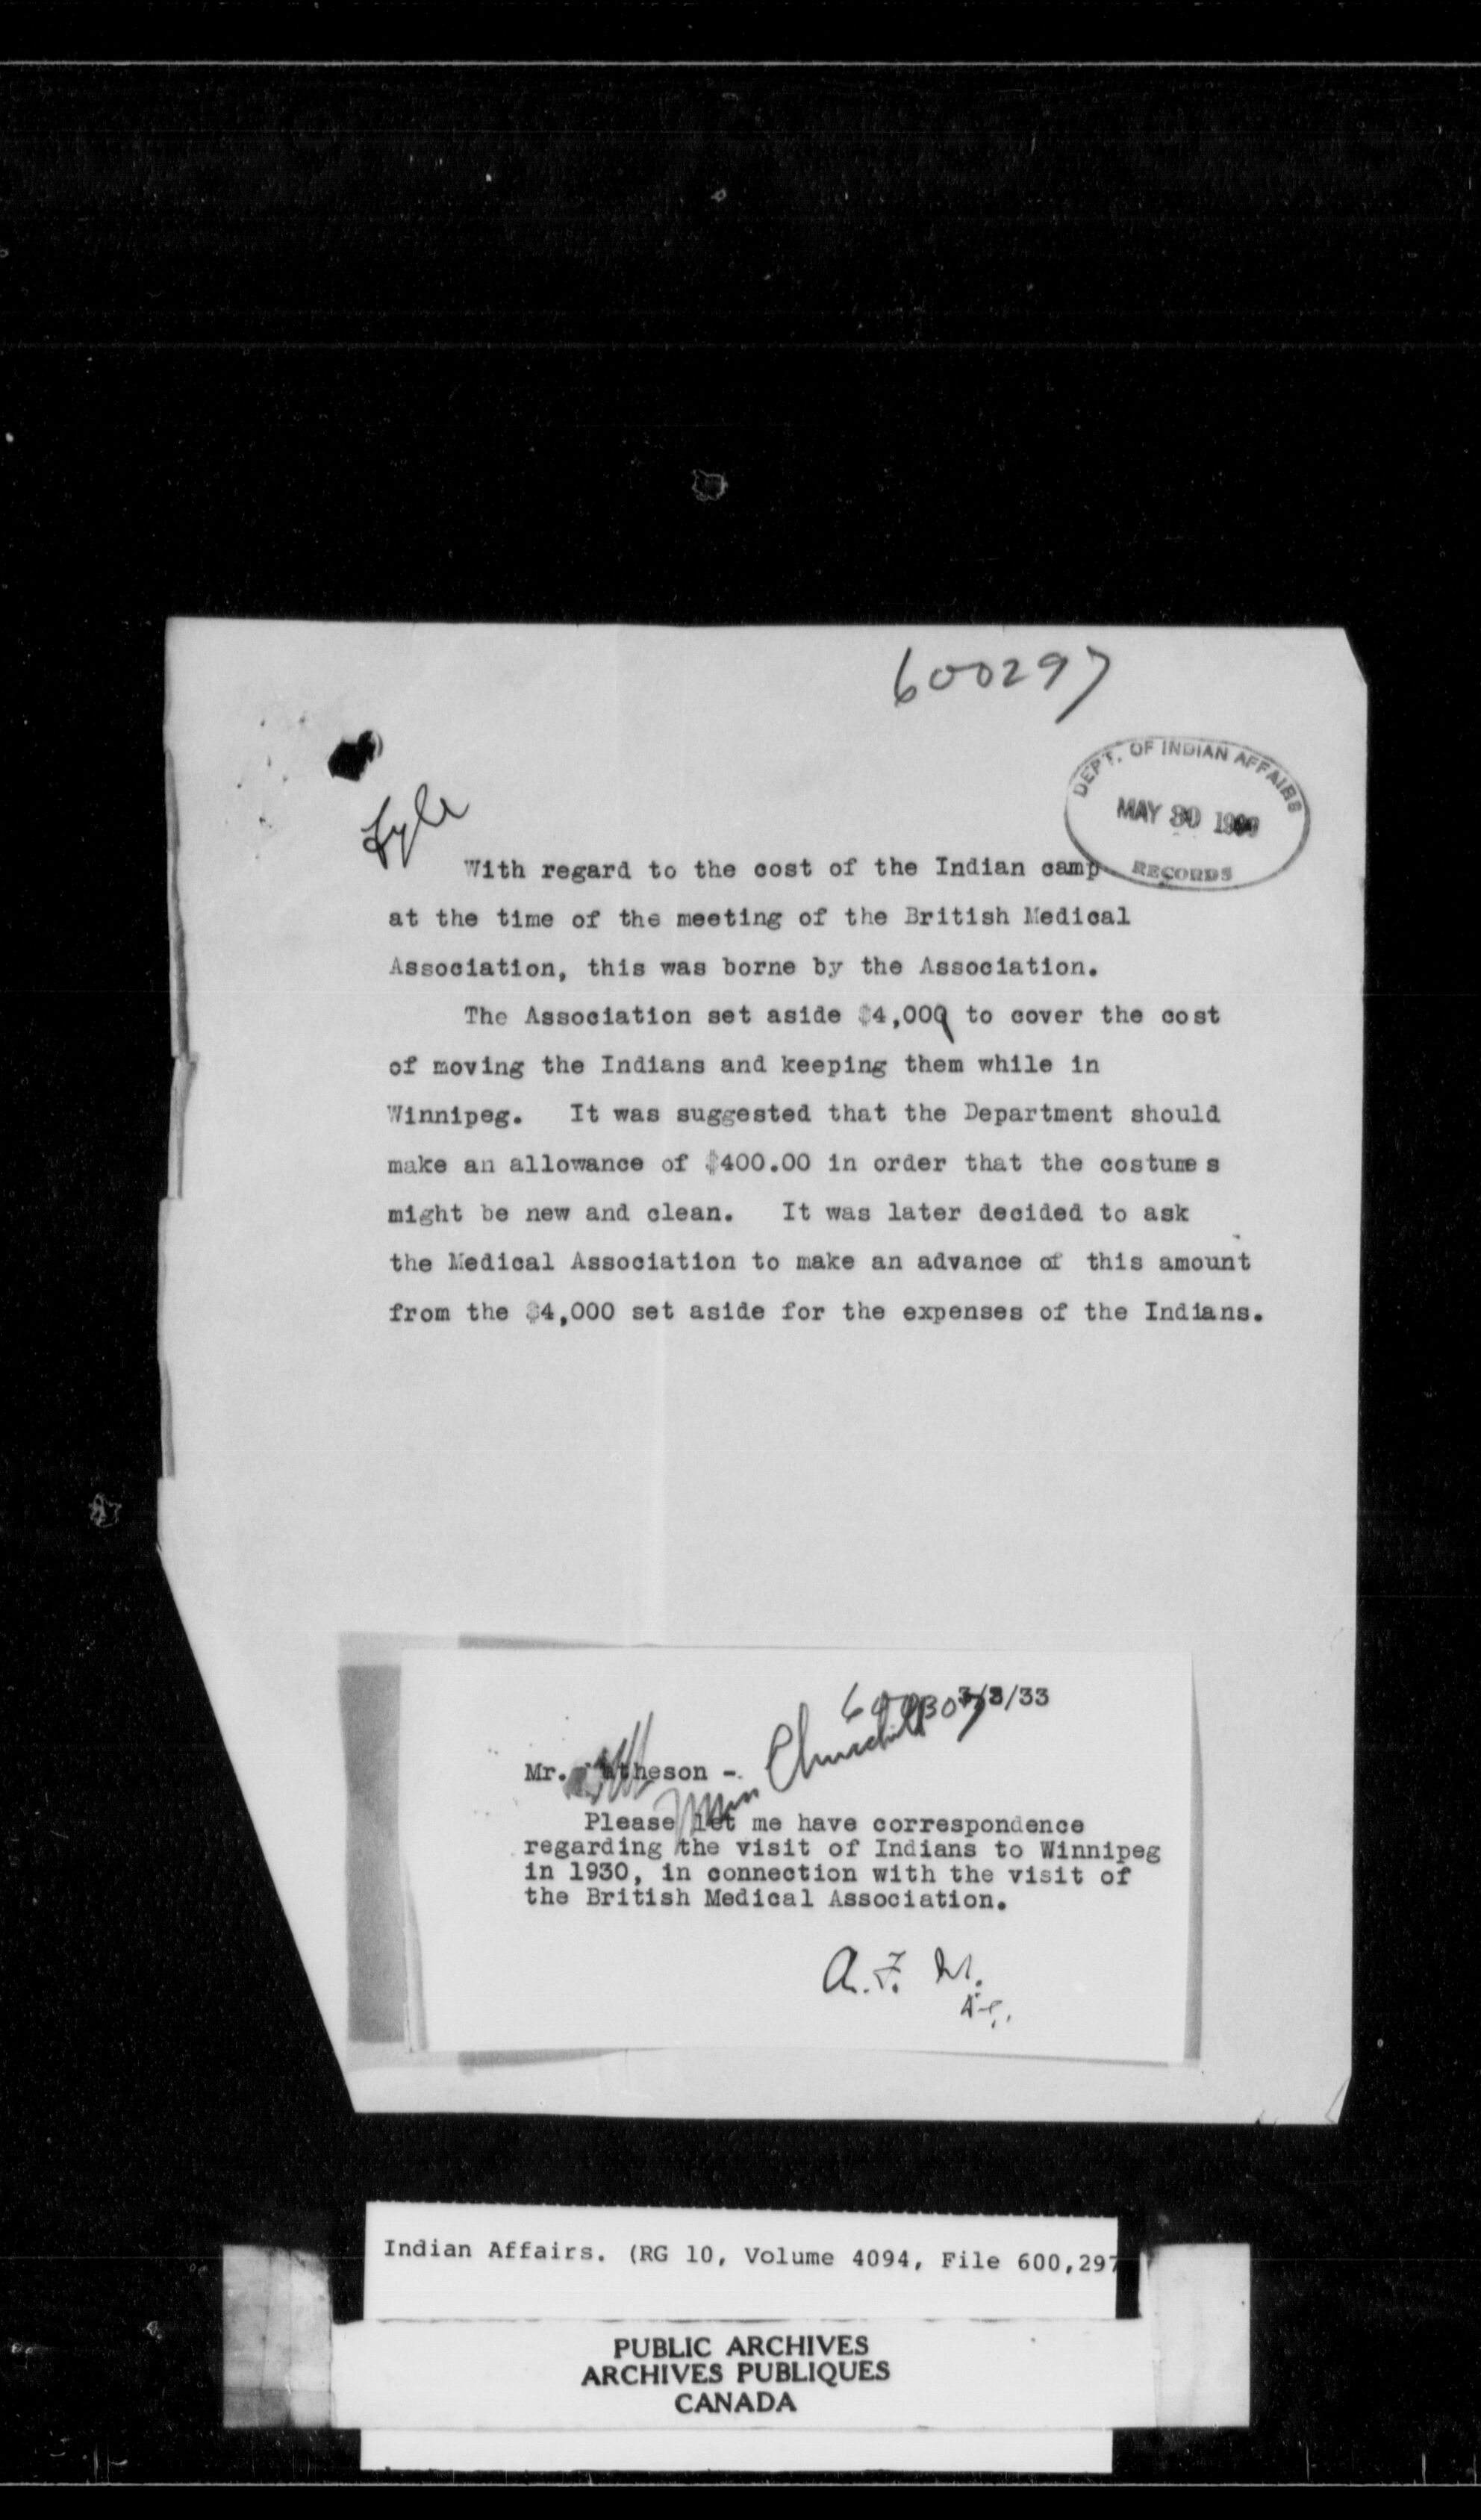 600297
DEPT. OF INDIAN AFFAIRS
MAY 30
RECORDS
Fyle
With regard to the cost of the Indian camp
at the time of the meeting of the British Medical
Association, this was borne by the Association.
The Association set aside $4,000 to cover the cost
of moving the Indians and keeping them while in
Winnipeg. It was suggested that the Department should
make an allowance of $400.00 in order that the costumes
might be new and clean. It was later decided to ask
the Medical Association to make an advance of this amount
from the $4,000 set aside for the expenses of the Indians.
/33
Churchill
Mr.
Please let me have correspondence
regarding the visit of Indians to Winnipeg
in 1930, in connection with the visit of
the British Medical Association.
A. F. M.
Indian Affairs. (RG 10, Volume 4094, File 600,297
PUBLIC ARCHIVES
ARCHIVES PUBLIQUES
CANADA